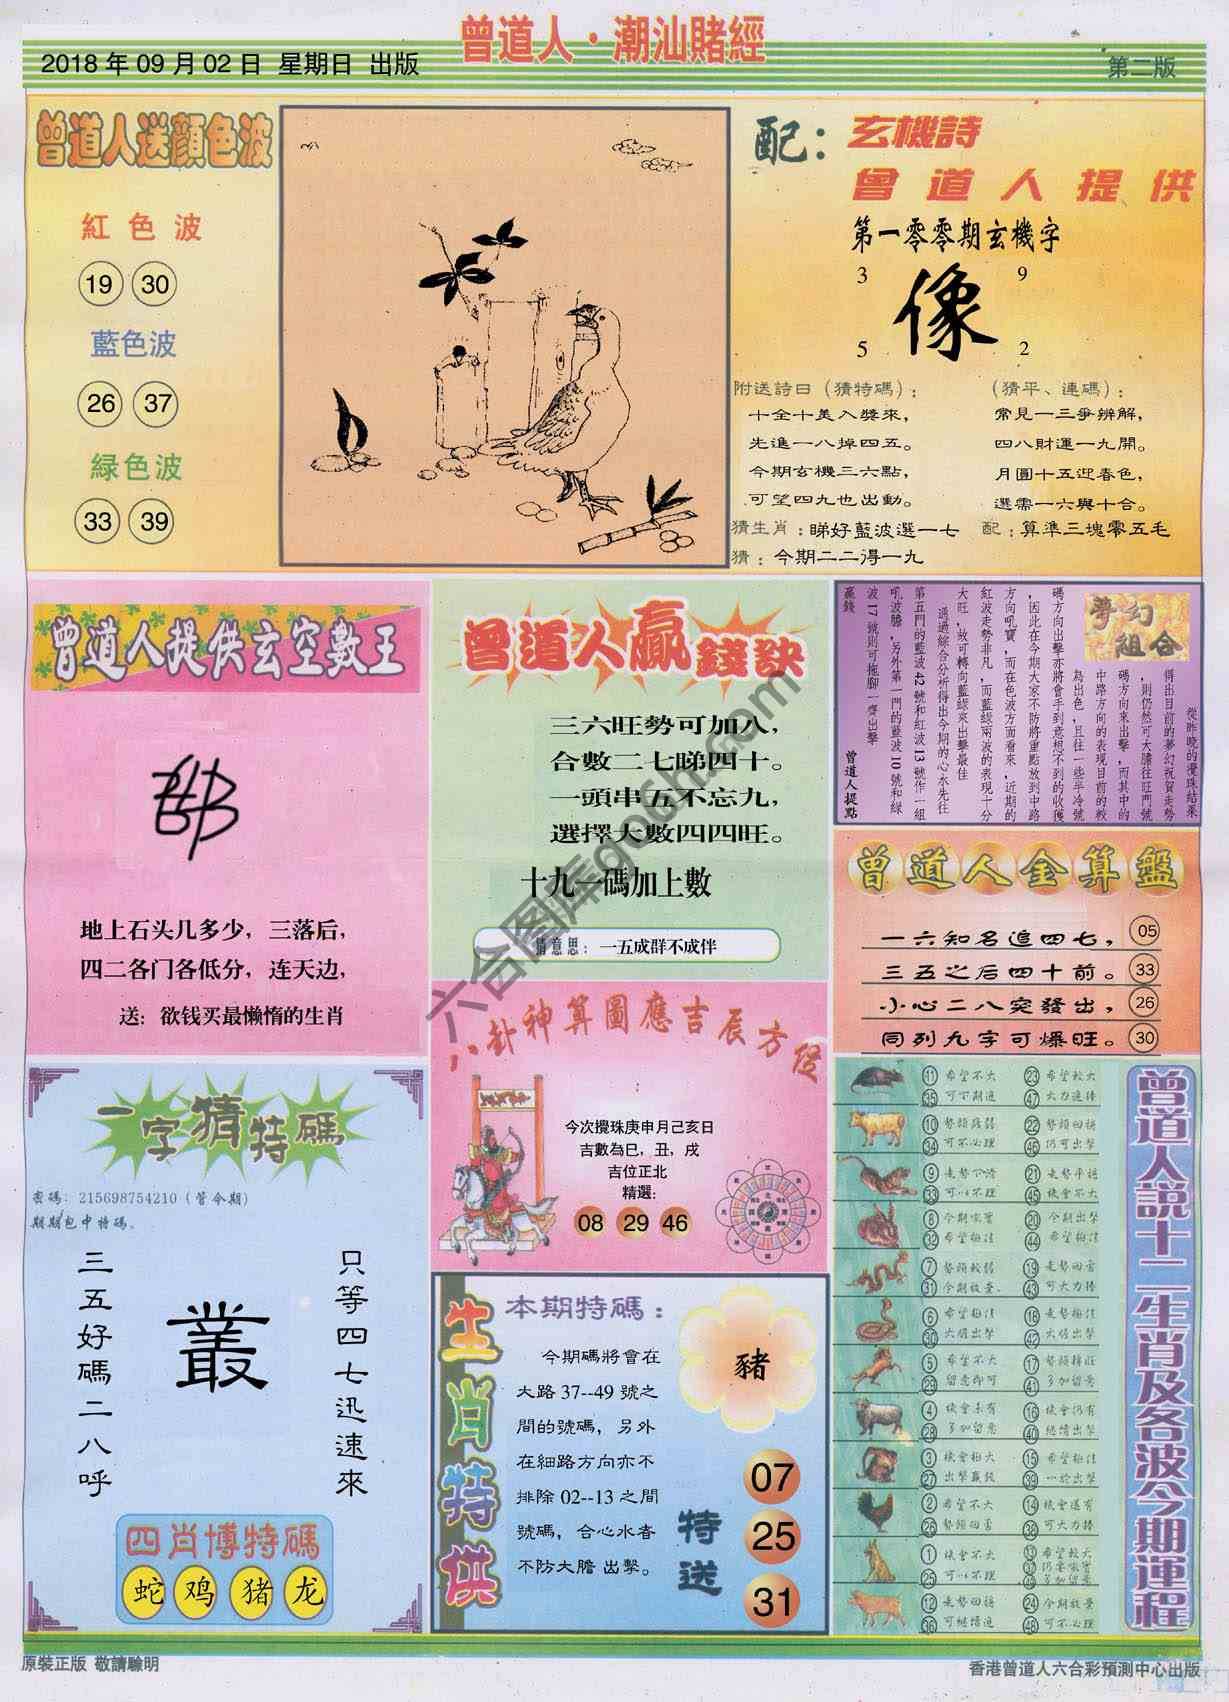 曾道人·潮汕賭經
2018 年 09 月 02 日 星期日 出版
第二版
曾道人送顏色波
紅色波
19 30
藍色波
26 37
緑色波
33 39
配：玄機詩
曾道人提供
第一零零期玄機字
3 9
像
5 2
附送詩曰（猜特碼）：
十全十美入獎來，
先進一八掉四五。
今期玄機三六點，
可望四九也出動。
（猜平、連碼）：
常見一三爭辨解，
四八財運一九開。
月圓十五迎春色，
選需一六與十合。
猜生肖：睇好藍波選一七
配：算準三塊零五毛
猜：今期二二得一九
曾道人提供玄空數王
地上石头几多少，三落后，
四二各门各低分，连天边，
送：欲钱买最懒惰的生肖
曾道人贏錢訣
三六旺勢可加八，
合數二七睇四十。
一頭串五不忘九，
選擇大數四四旺。
十九一碼加上數
猜意思：一五成群不成伴
夢幻組合
從昨晚的攪珠結果
得出目前的夢幻祝賀走勢
，則仍然可大膽往旺門號
碼方向來出擊，而其中的
中路方向的表現目前的較
為出色，且往一些半冷號
碼方向出擊亦將會手到意想不到的收獲
，因此在今期大家不防將重點放到中路
方向吼寶，而在色波方面看來，近期的
紅波走勢非凡，而藍綠兩波的表現十分
大旺，故可轉向藍綠來出擊最佳
通過綜合分析得出今期的心水先往
第五門的藍波 42 號和紅波 13 號作一組
吼波膽，另外第一門的藍波 10 號和綠
波 17 號則可拖腳一齊出擊
贏錢
曾道人提點
曾道人金算盤
一六知名追四七， 05
三五之后四十前。 33
小心二八突發出， 26
同列九字可爆旺。 30
八卦神算圖應吉辰方位
今次攪珠庚申月己亥日
吉數為巳，丑，戌
吉位正北
精選：
08 29 46
一字猜特碼
密碼：215698754210（管今期）
期期包中特碼。
三五好碼二八呼
叢
只等四七迅速來
四肖博特碼
蛇 鸡 猪 龙
生肖特供
本期特碼：
今期碼將會在
大路 37--49 號之
間的號碼，另外
在細路方向亦不
排除 02--13 之間
號碼，合心水者
不防大膽 出擊。
豬
特送
07
25
31
11 希望不大 23 希望較大
35 可下期追 47 大力追捧
10 34 可不必理 22 46 仍可出擊
9 33 可以不理 21 45 機會不大
8 32 希望極佳 20 今期出擊 44 希望極佳
7 勢頭較弱 31 今期放棄 19 43 可大力捧
6 希望極佳 30 大倍出擊 18 走勢極佳 42 大倍出擊
5 希望不大 29 留意即可 17 41 多加留意
4 機會未有 28 多加留意 16 機會仍有 40 繼續出擊
3 機會極大 27 出擊贏錢 15 希望極佳 39 一於出擊
2 希望不大 26 14 機會還有 38 可大力捧
1 機會不大 25 可以不理 13 希望較大 37 49 多加留意
12 36 可繼續追 24 今期放棄 48 可不必理
曾道人說十二生肖及各波今期運程
六合图库906h.com
原裝正版 敬請驗明
香港曾道人六合彩預測中心出版